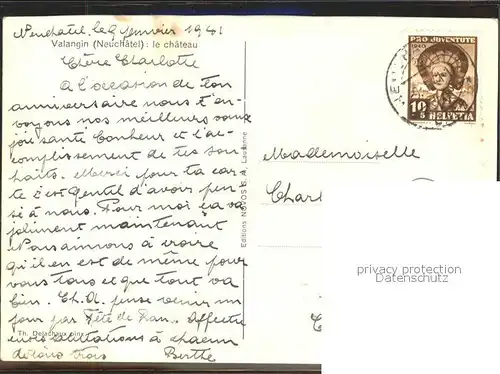 Neuchâtel, le 9 janvier 1941
Valangin (Neuchâtel): le château
Chère Charlotte
A l'occasion de ton
anniversaire nous t'en-
voyons nos meilleurs voeux
joie santé bonheur et l'ac-
complissement de tes sou-
haits. Merci pour ta car-
te c'est gentil d'avoir pen-
sé à nous. Pour moi ça va
joliment maintenant
Puissions à croire
qu'il en est de même pour
vous tous et que tout va
bien. Ch. A. pense venir un
jour par Fête de l'an. Affectu
Th. Delachaux pinx.
salutations à chacun
de nous trois Berthe
Editions NOVOS S.A. Lausanne
PRO JUVENTUTE
1940
10
5
HELVETIA
Mademoiselle
Charl
privacy protection
Datenschutz